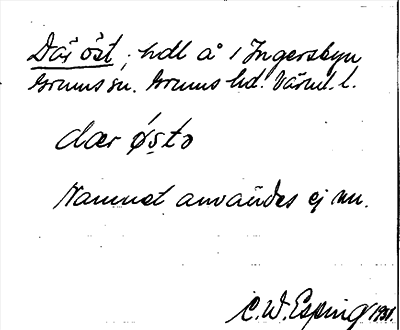 Där öst, hdl å i Ingersbyn
Grums sn. Grums hd. Värml. l.
dær østə
Namnet användes ej nu.
C.W. Esping 1931.